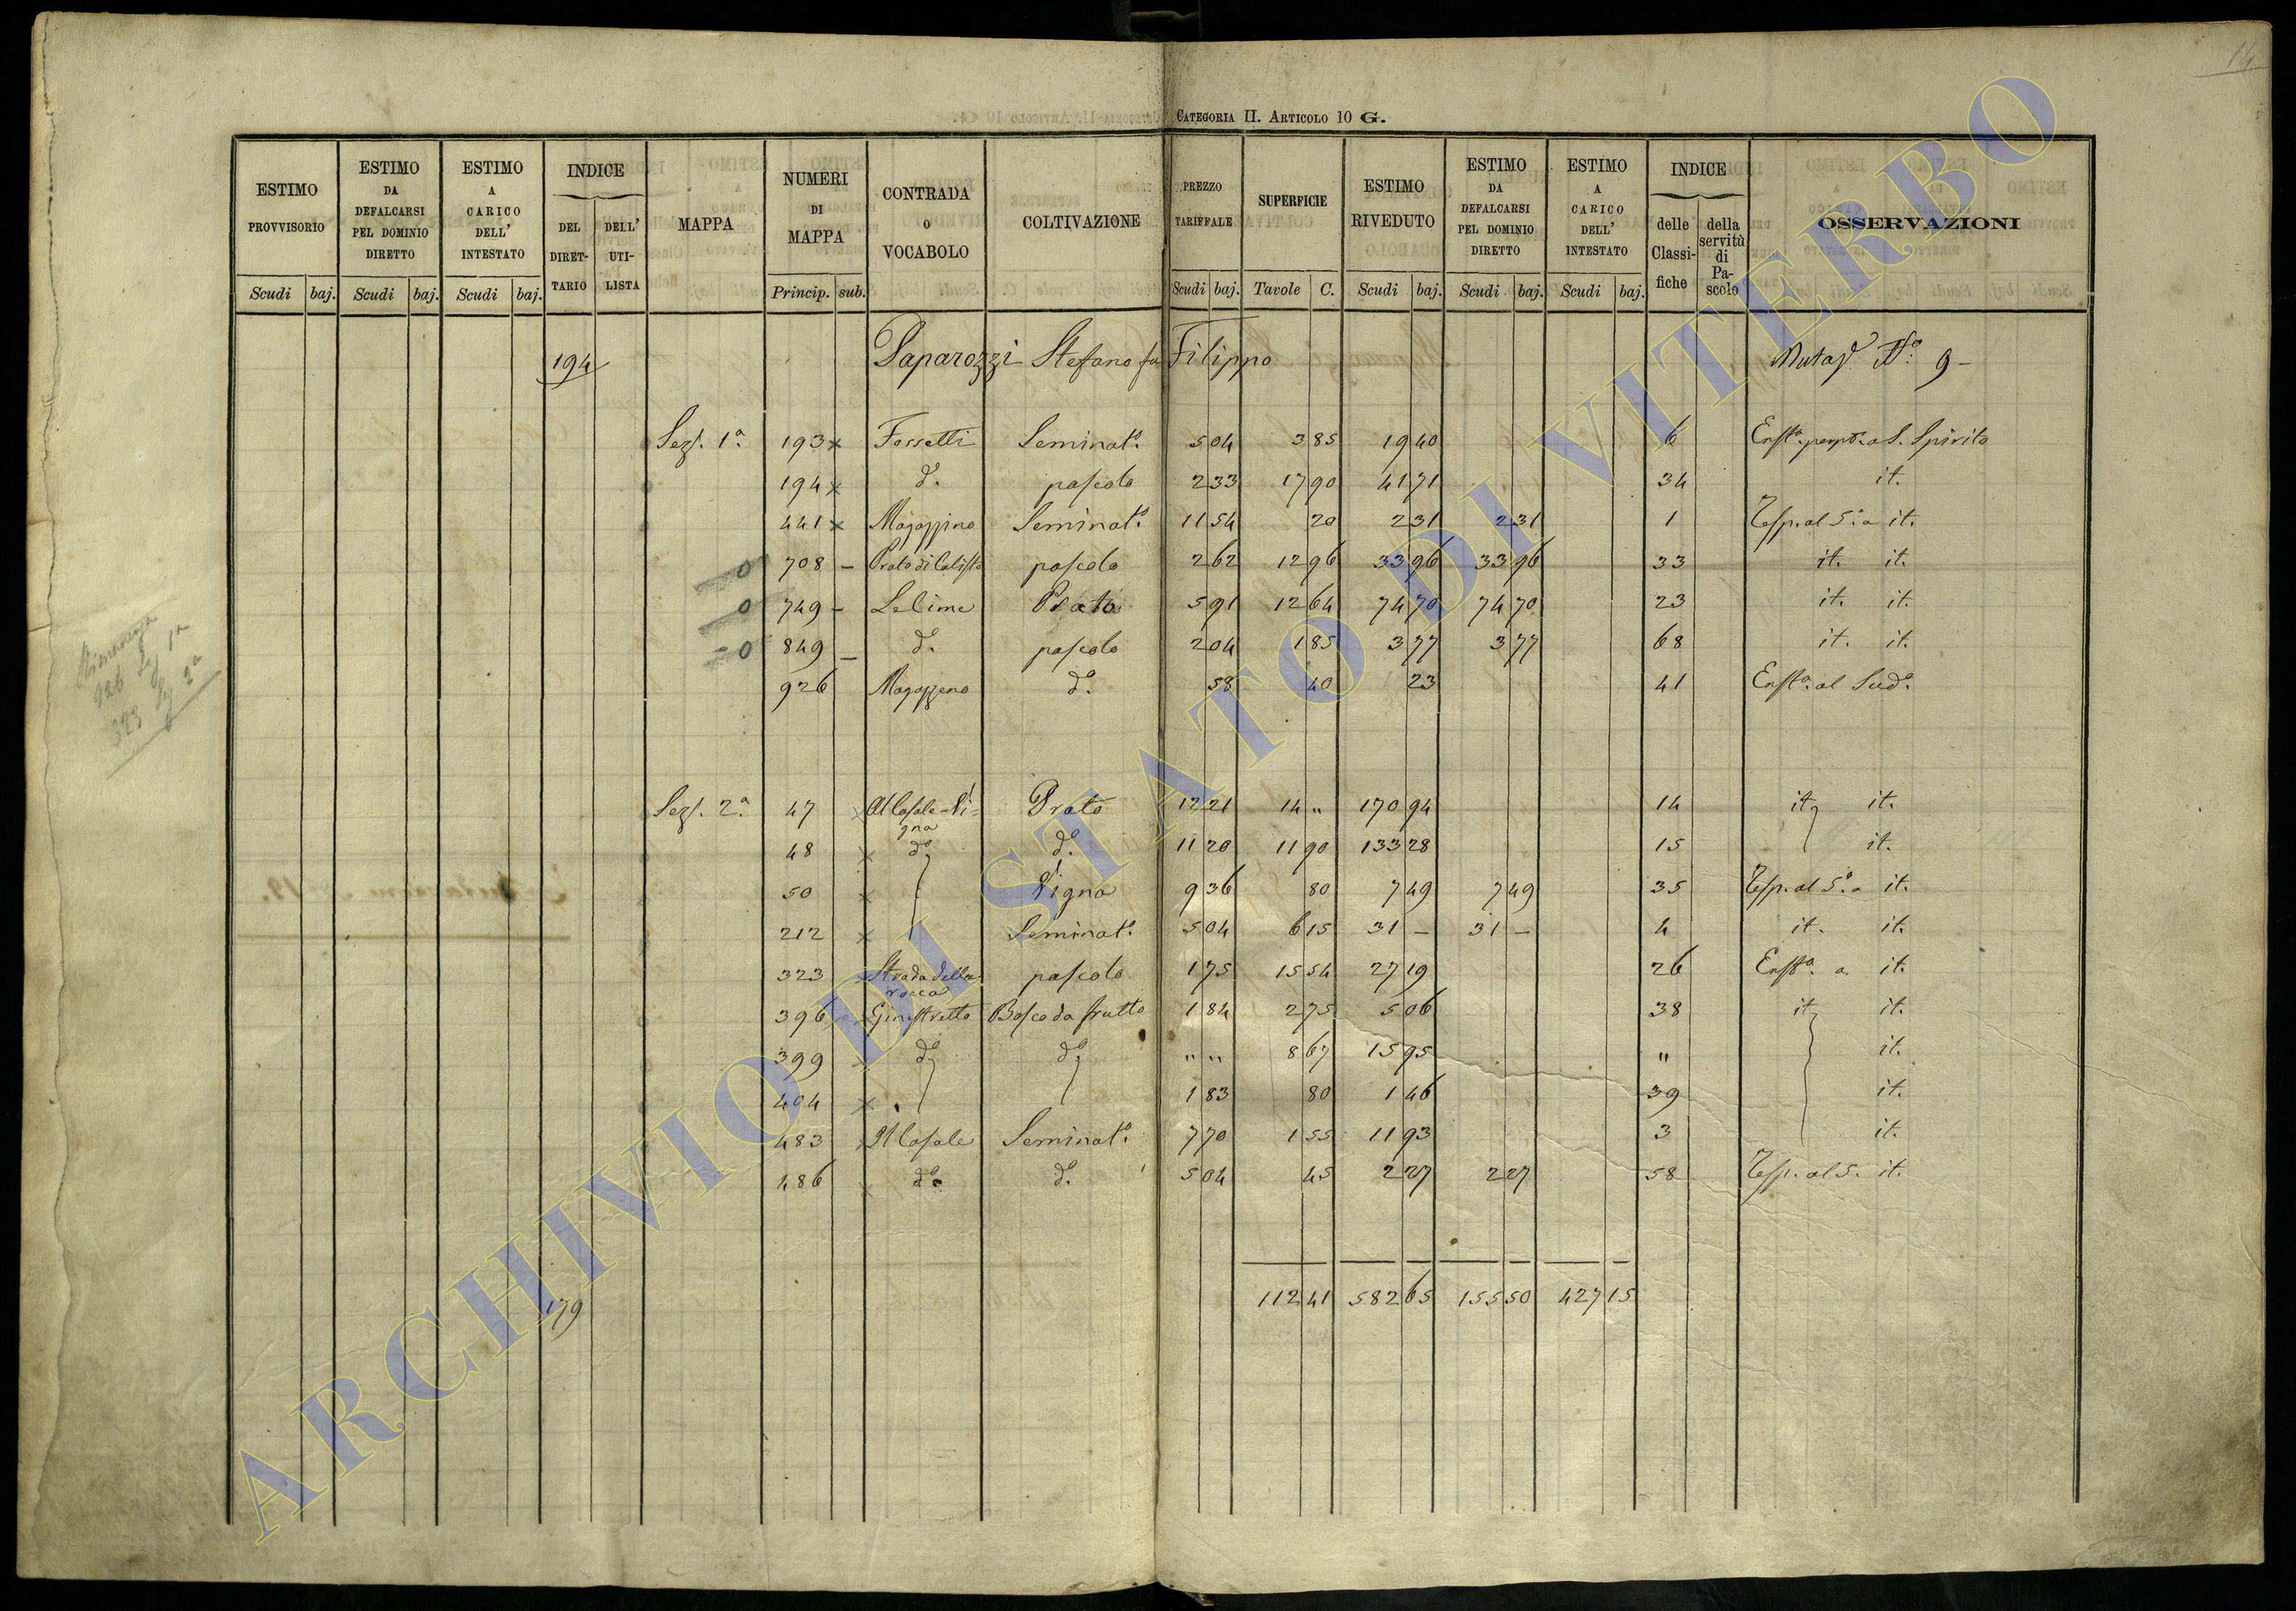 14
CATEGORIA II. ARTICOLO 10 G.
ESTIMO PROVVISORIO
ESTIMO DA DEFALCARSI PEL DOMINIO DIRETTO
ESTIMO A CARICO DELL' INTESTATO
INDICE
DEL DIRET-TARIO
DELL' UTI-LISTA
MAPPA
NUMERI DI MAPPA
CONTRADA O VOCABOLO
COLTIVAZIONE
PREZZO TARIFFALE
SUPERFICIE
ESTIMO RIVEDUTO
ESTIMO DA DEFALCARSI PEL DOMINIO DIRETTO
ESTIMO A CARICO DELL' INTESTATO
INDICE
delle Classi-fiche
della servitù di Pa-scolo
OSSERVAZIONI
Scudi baj. Scudi baj. Scudi baj. Princip. sub. Scudi baj. Tavole C. Scudi baj. Scudi baj. Scudi baj.
194 Paparozzi Stefano fu Filippo N.o 9 -
Sez. 1a. 193 x Fossetti Seminato. 5 04 3 85 19 40 6 Enfta. perpa. a S. Spirito
194 x do. pascolo 2 33 17 90 41 71 34 it.
441 x Magazzino Seminato. 11 54 20 2 31 2 31 1 Risp. al 5o. a it.
0 708 - Prato di Calisto pascolo 2 62 12 96 33 96 33 96 33 it. it.
0 749 - Le Cime Prato 5 91 12 64 74 70 74 70 23 it. it.
- 0 849 - do. pascolo 2 04 1 85 3 77 3 77 68 it. it.
926 Magazzeno do. 58 40 23 41 Enfta. al Sudo.
Rimanenza
926 Sez 1a
323 Sez 2a
Sez. 2a. 47 x Il Casale-Vi=gna Prato 12 21 14 " 170 94 14 it. it.
48 x do. do. 11 20 11 90 133 28 15 it.
50 x Vigna 9 36 80 7 49 7 49 35 Risp. al 5o. a it.
212 x Seminato. 5 04 6 15 31 - 31 - 4 it. it.
323 x Strada della rocca pascolo 1 75 15 54 27 19 26 Enfta. a it.
396 x Ginestretto Bosco da frutto 1 84 2 75 5 06 38 it. it.
399 x do. do. " " 8 67 15 95 " it.
404 x 1 83 80 1 46 39 it.
483 x Il Casale Seminato. 7 70 1 55 11 93 3 it.
486 x do. do. 5 04 45 2 27 2 27 58 Risp. al 5. it.
112 41 582 65 155 50 427 15
179
ARCHIVIO DI STATO DI VITERBO